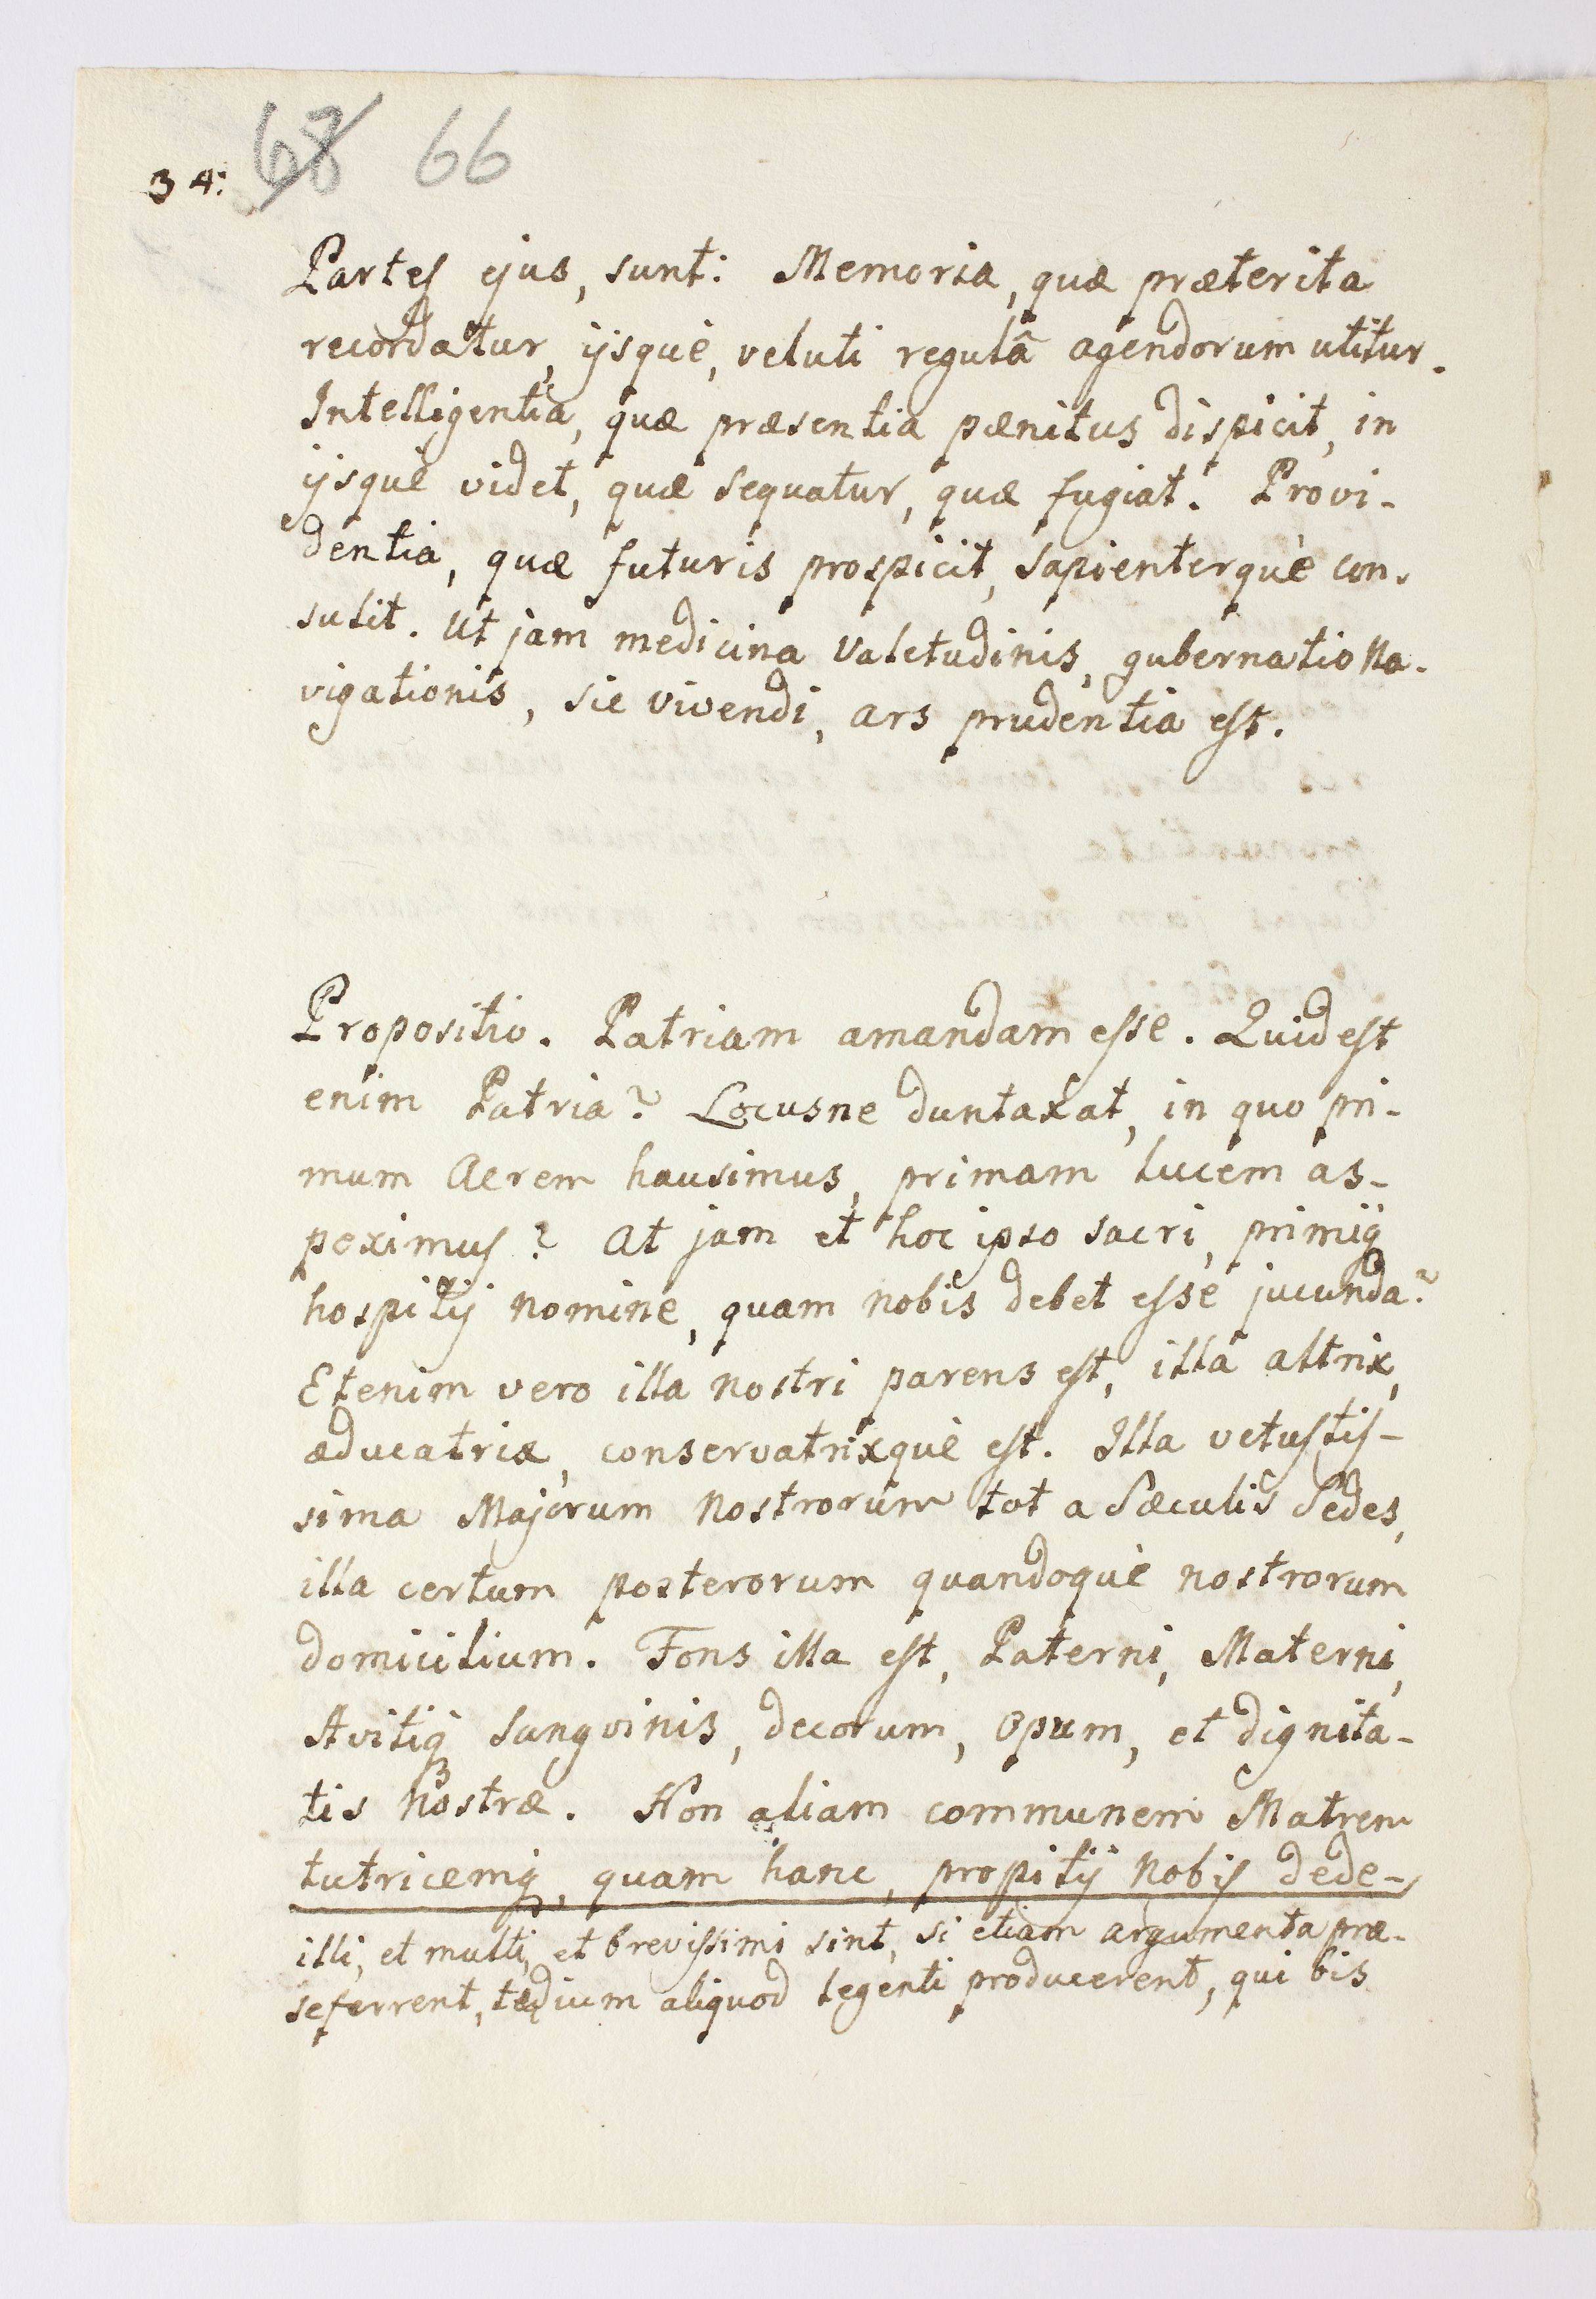 34: 68 66
Partes ejus, sunt: Memoria, quæ præterita
recordatur, ijsquè, veluti regulâ agendorum utitur.
Intelligentia, quæ præsentia pænitus dispicit, in
ijsquè videt, quæ sequatur, quæ fugiat. Provi-
dentia, quæ futuris prospicit, sapienterquè con-
sulit. Ut jam medicina Valetudinis, gubernatio Na-
vigationis, sic vivendi, ars prudentia est.
Propositio. Patriam amandam esse. Quid est
enim Patria? Locusne duntaxat, in quo pri-
mum Aerem hausimus, primam lucem as-
peximus? At jam et hoc ipso sacri, primiq
hospitij nomine, quam nobis debet esse jucunda?
Etenim vero illa nostri parens est, illa altrix,
æducatrix, conservatrixquè est. Illa vetustis-
sima Majorum Nostrorum tot a Sæculis Sedes,
illa certum posterorum quandoquè nostrorum
domicilium. Fons illa est, Paterni, Materni,
Avitiq sangvinis, decorum, Opum, et dignita-
tis Nostræ. Non aliam communem Matrem
tutricemq, quam hanc, propitij Nobis dede-
illi, et multi, et brevissimi sint, si etiam argumenta præ-
seferrent, tædium aliquod legenti producerent, qui bis